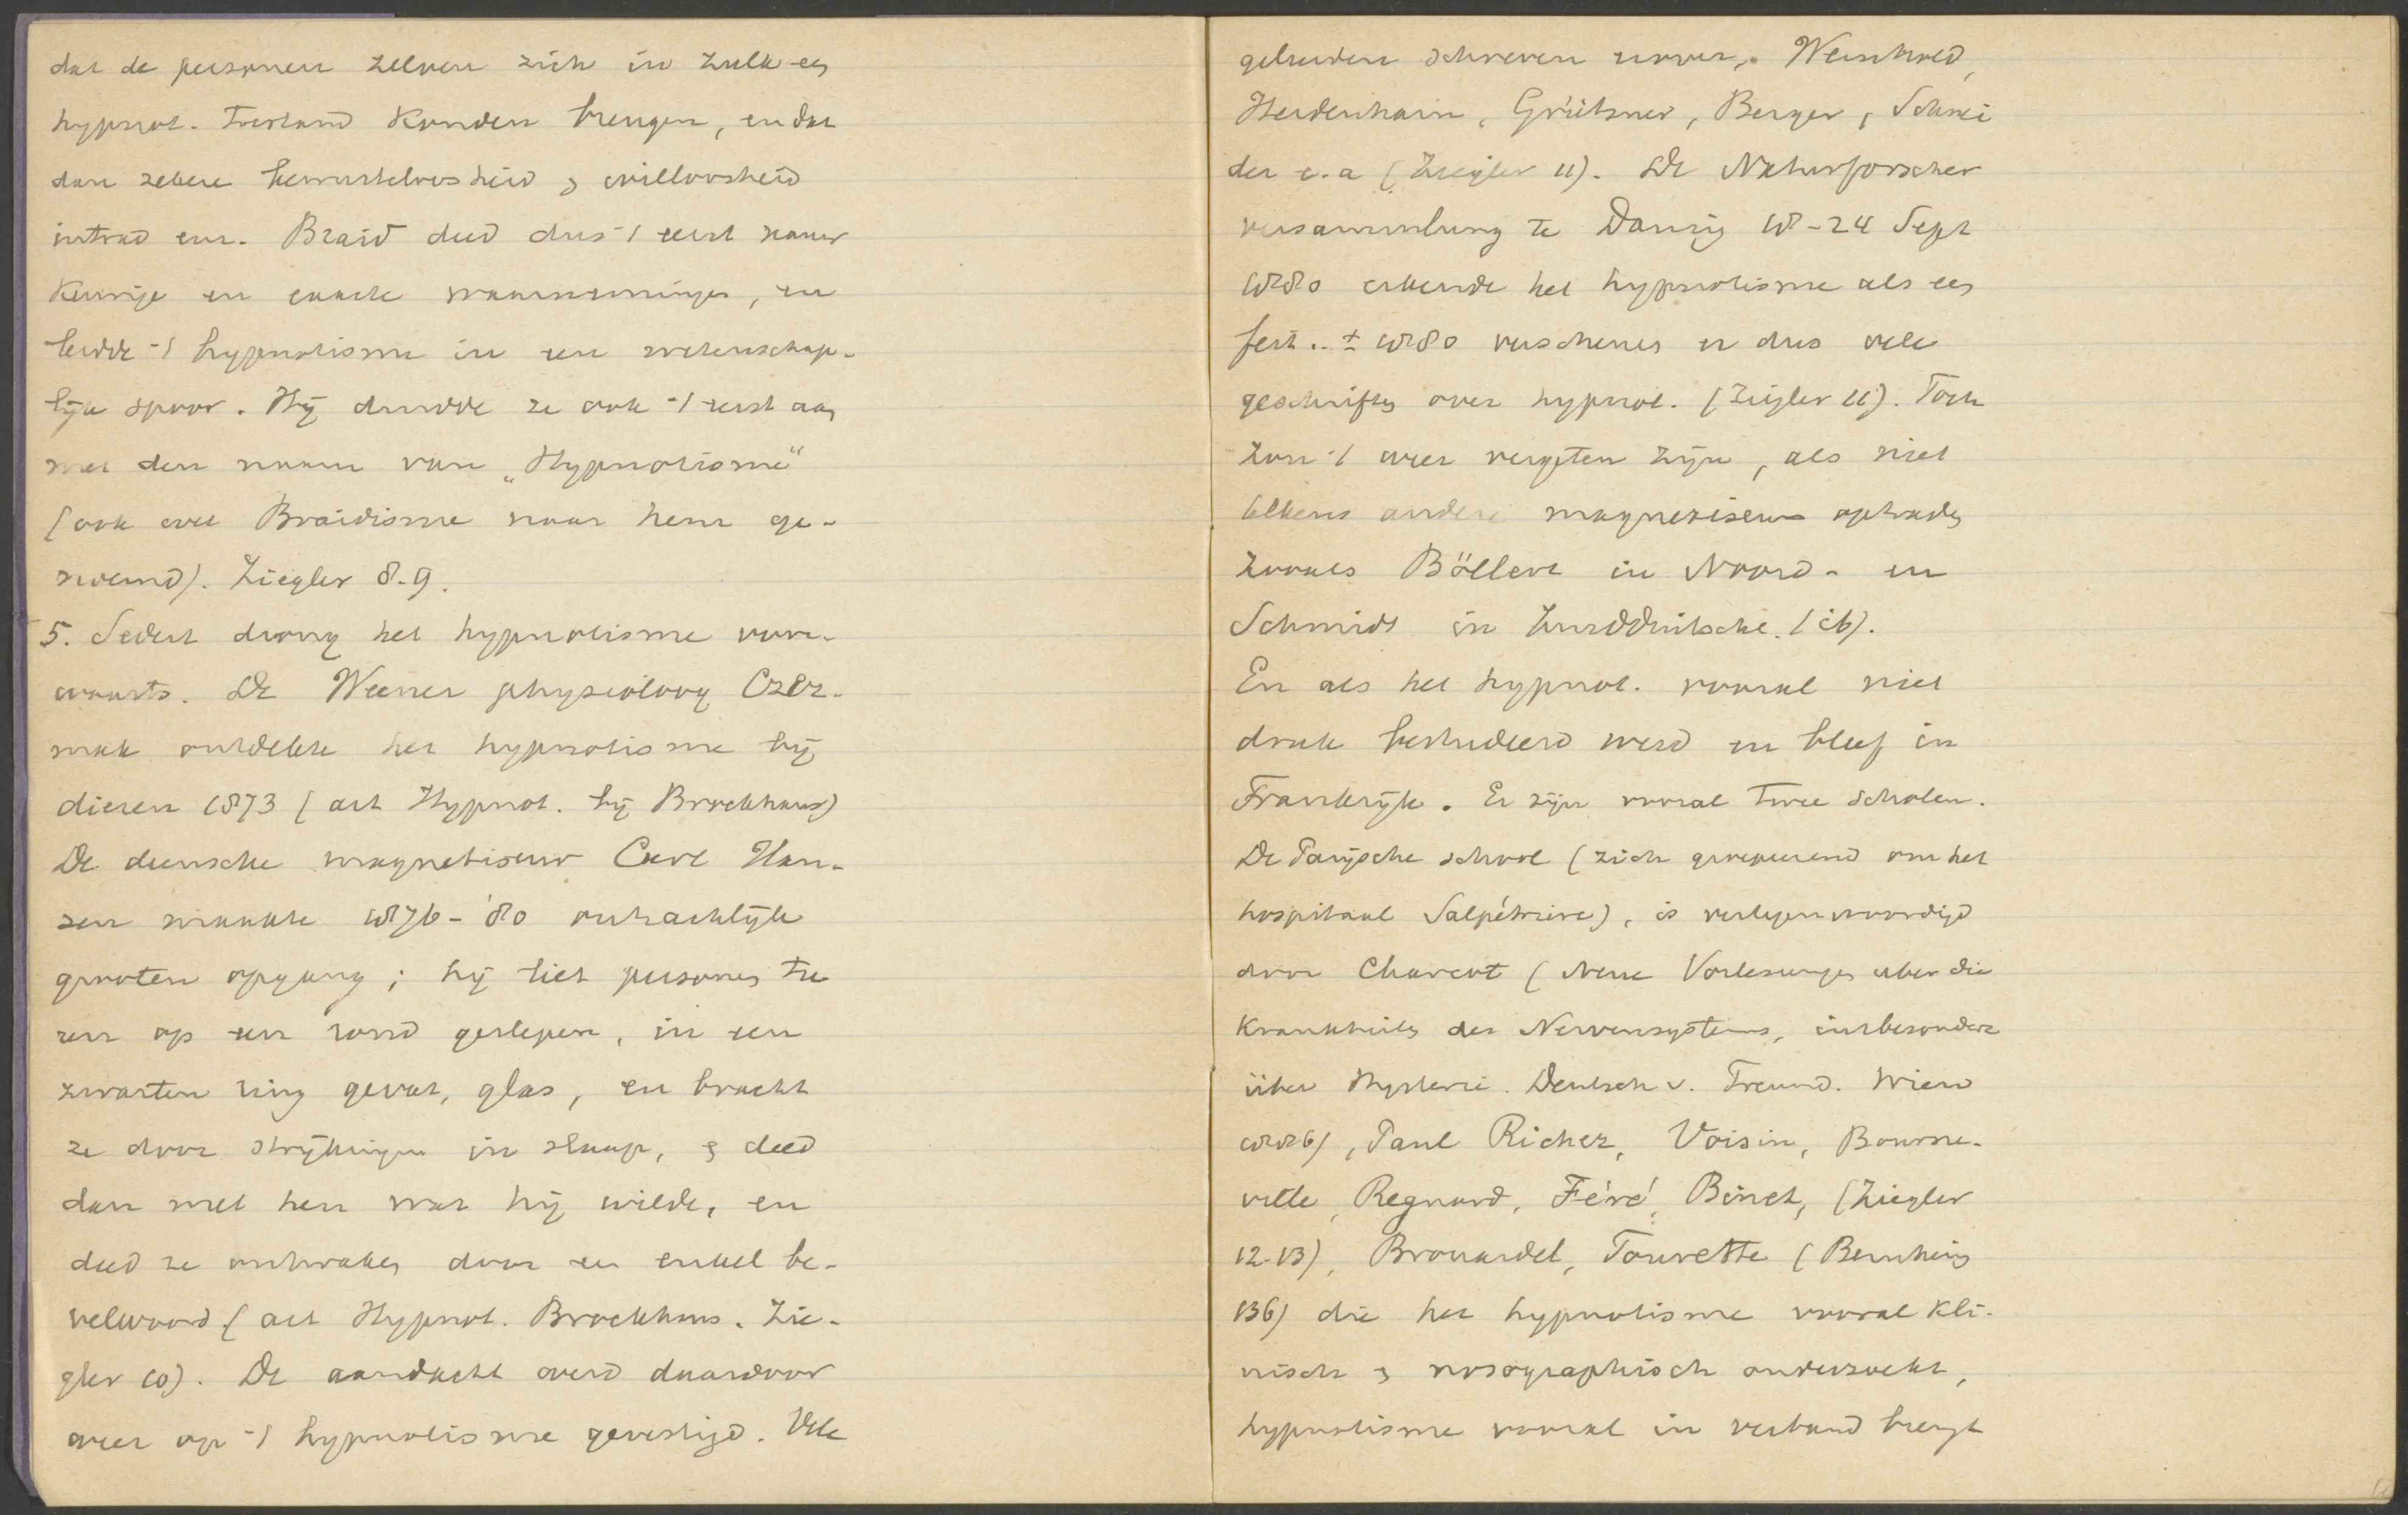 dat de personen zelven zich in zulk een
hypnot. toestand konden brengen, en dat
dan zekere bewusteloosheid & willoosheid
intrad enz. Braid deed dus 't eerst nauw
keurige en exacte waarnemingen, en
leidde 't hypnotisme in een wetenschap-
lijk spoor. Hij duidde ze ook 't eerst aan
met den naam van „Hypnotisme"
(ook wel Braidisme naar hem ge-
noemd). Ziegler 8-9.
5. Sedert drong het hypnotisme voor-
waarts. De Weener physioloog Czer-
mak ontdekte het hypnotisme bij
dieren 1873 (art Hypnot. bij Brockhaus)
De deensche magnetiseur Carl Han-
sen maakte 1876-'80 ontzachlijk
grooten opgang; hij liet personen tu
ren op een rond geslepen, in een
zwarten ring gevat, glas, en bracht
ze door strijkingen in slaap, & deed
dan met hen wat hij wilde, en
deed ze ontwaken door een enkel be-
velwoord (art Hypnot. Brockhaus. Zie-
gler 10). De aandacht werd daardoor
weer op 't hypnotisme gevestigd. Vele
geleerden schreven erover. Weinhold,
Heidenhain, Grützner, Berger, Schnei
der e.a (Ziegler 11). De Naturforscher
versammlung te Danzig 18-24 Sept
1880 erkende het hypnotisme als een
feit. ± 1880 verschenen er dus vele
geschriften over hypnot. (Ziegler 11). Toch
zou 't weer vergeten zijn, als niet
telkens andere magnetiseurs optraden
zooals Böllert in Noord- en
Schmidt in Zuidduitschl. (ib).
En als het hypnot. vooral niet
druk bestudeerd werd en bleef in
Frankrijk. Er zijn vooral twee scholen.
De Parijsche school (zich groepeerend om het
hospitaal Salpétrière), is vertegenwoordigd
door Charcot (Neue Vorlesungen uber die
Krankheiten des Nervensystems, insbesondere
über Hysterie. Deutsch v. Freund. Wien
1886), Paul Richer, Voisin, Bourne-
ville, Regnard, Féré, Binet, (Ziegler
12-13), Brouardel, Tourette (Bernheim
136) die het hypnotisme vooral kli-
nisch & nosographisch onderzoekt,
hypnotisme vooral in verband brengt